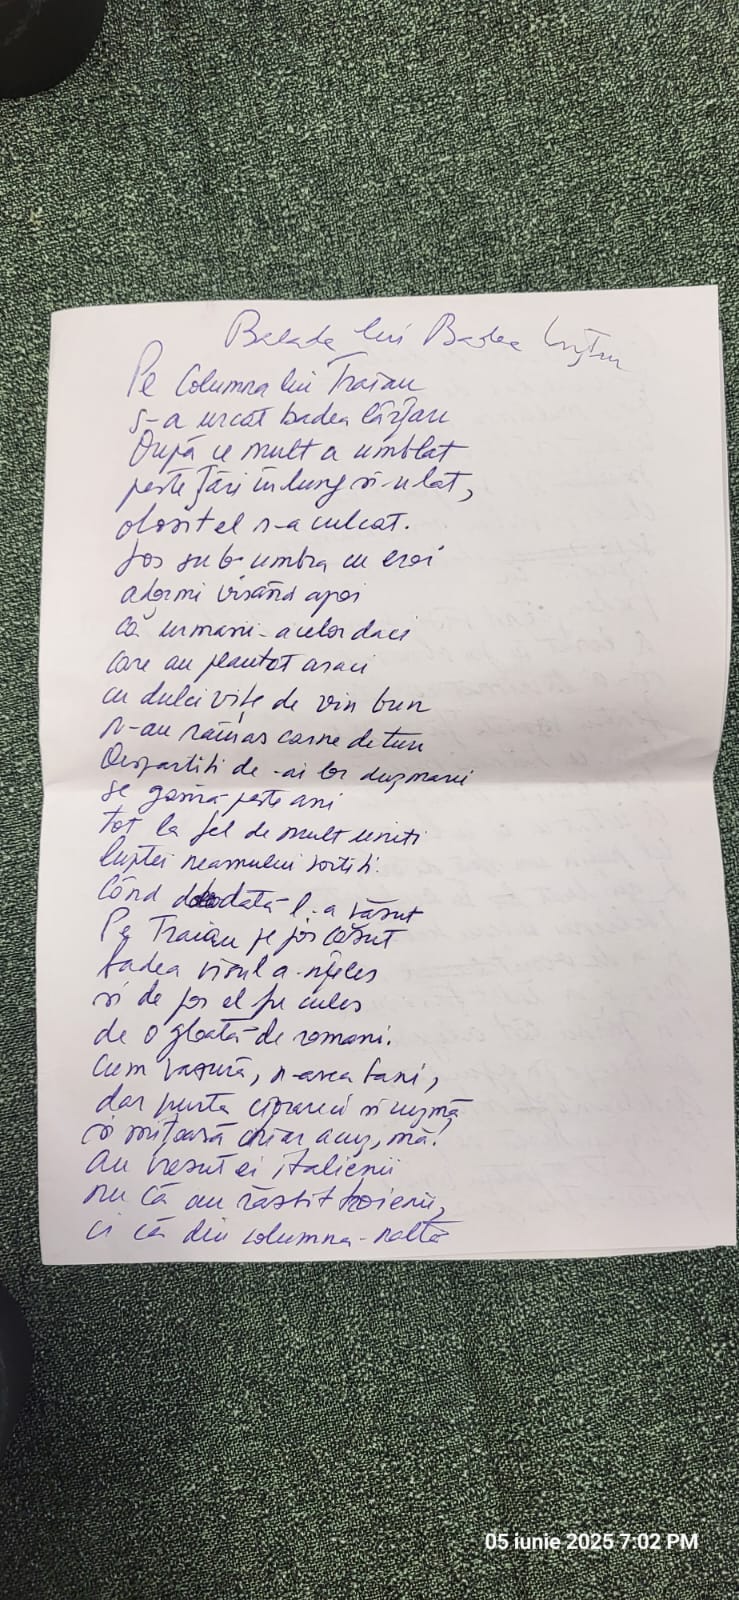 Balada lui Badea
Pe Columna lui Traian
s-a urcat badea Cârțan
După ce mult a umblat
peste țări în lung și-n lat,
obosit el s-a culcat.
Jos sub umbra cu eroi
adormi visând apoi
Că urmarii-acelor daci
care au plantat araci
cu dulci vițe de vin bun
n-au rămas carne de tun
Despărțiți de-ai lor dușmani
se gândi peste ani
tot la fel de mult uniți
luptei neamului sortiți.
Când deodată l-a văzut
Pe Traian pe jos căzut
badea visul a-nțeles
și de jos el fu cules
de o gloată de romani.
Cum vasură, n-avea bani,
dar purta cioareci și cușmă
și mițoasă chiar acuș, mă!
Au crezut ei italienii
nu că au răstit troienii,
ci că din columna-naltă
05 iunie 2025 7:02 PM